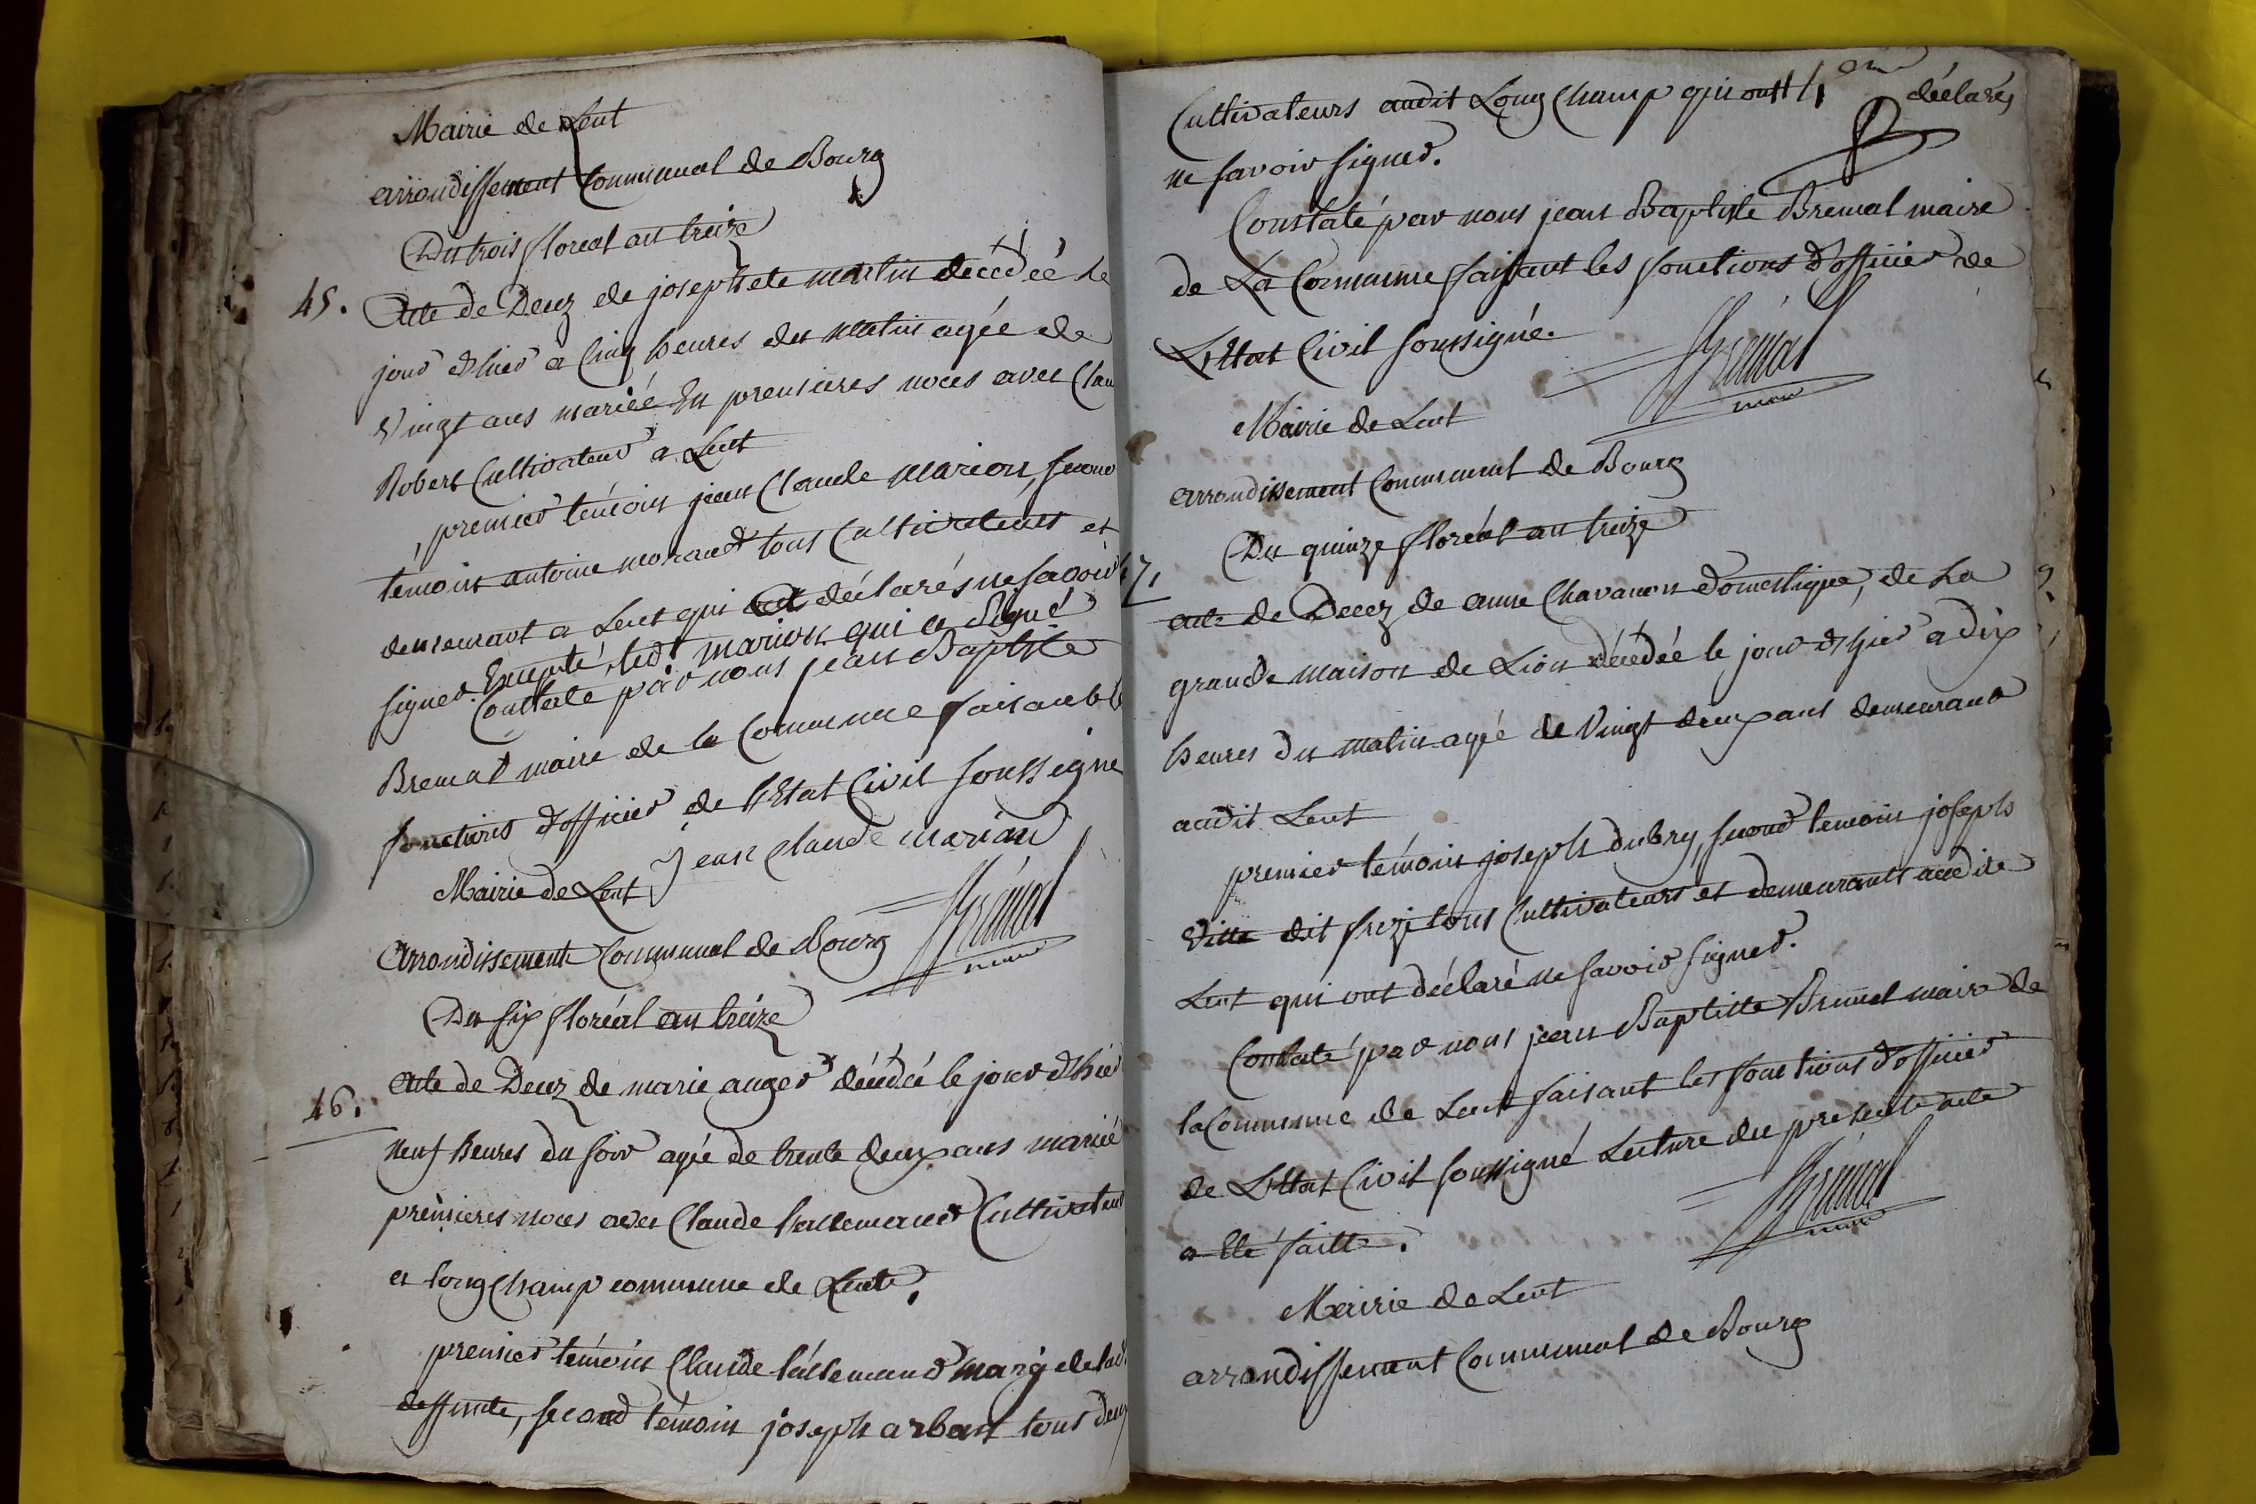 Mairie de Lent
arrondissement Communal de Bourg
Du trois floreal an treize
45. Acte de Decez de josephete martin decedeé le
jour d'hier a Cinq heures du matin agée de
Vingt ans mariéé En premieres noces avec Clau
Robert Cultivateur a Lent
premier témoin jean Claude marion, second
témoin antoine morand tous Cultivateurs et
demeurant a Lent qui ont déclarés ne savoir
signer. Excepté led. marion qui a Signé
Constaté par nous jean Baptiste
Bremal maire de la Commune faisant les
fonctions d'officier de l'Etat Civil soussigné
jean claude marion
Mairie de Lent
Brémal
maire
Arrondissement Communal de Bourg
Du six floréal an treize
46. Acte de Decez de marie auger décédeé le jour d'hier
neuf heures du soir agée de trente deux ans mariée
premieres noces avec Claude lallemand Cultivateur
a long Champ commune de Lent.
premier témoin Claude lallemand mary de lad.
deffunte, second témoin joseph arban tous deux
Cultivateurs audit Long Champ qui ont déclarés
ne savoir signer.
Constaté par nous jean Baptiste Bremal maire
de La Commune faisant les fonctions d'officier de
L'Ettat Civil soussigné.
Brémal
maire
Mairie de Lent
arrondissement Communal de Bourg
Du quinze floréal an treize
47. acte de Decez de anne Chavanon domestique, de La
grande maison de Lion décédeé le jour d'hier a dix
heures du matin agé de Vingt deux ans demeurant
audit Lent
premier témoin joseph dubry, second temoin joseph
Ville dit frezi tous Cultivateurs et demeurants audite
Lent qui ont déclaré ne savoir signer.
Constaté par nous jean Baptiste Bremal maire de
la Commune de Lent faisant les fonctions d'officier
de L'Ettat Civil soussigné Lecture du presente acte
a Eté faitte.
Brémal
maire
Mairie de Lent
arrondissement Communal de Bourg